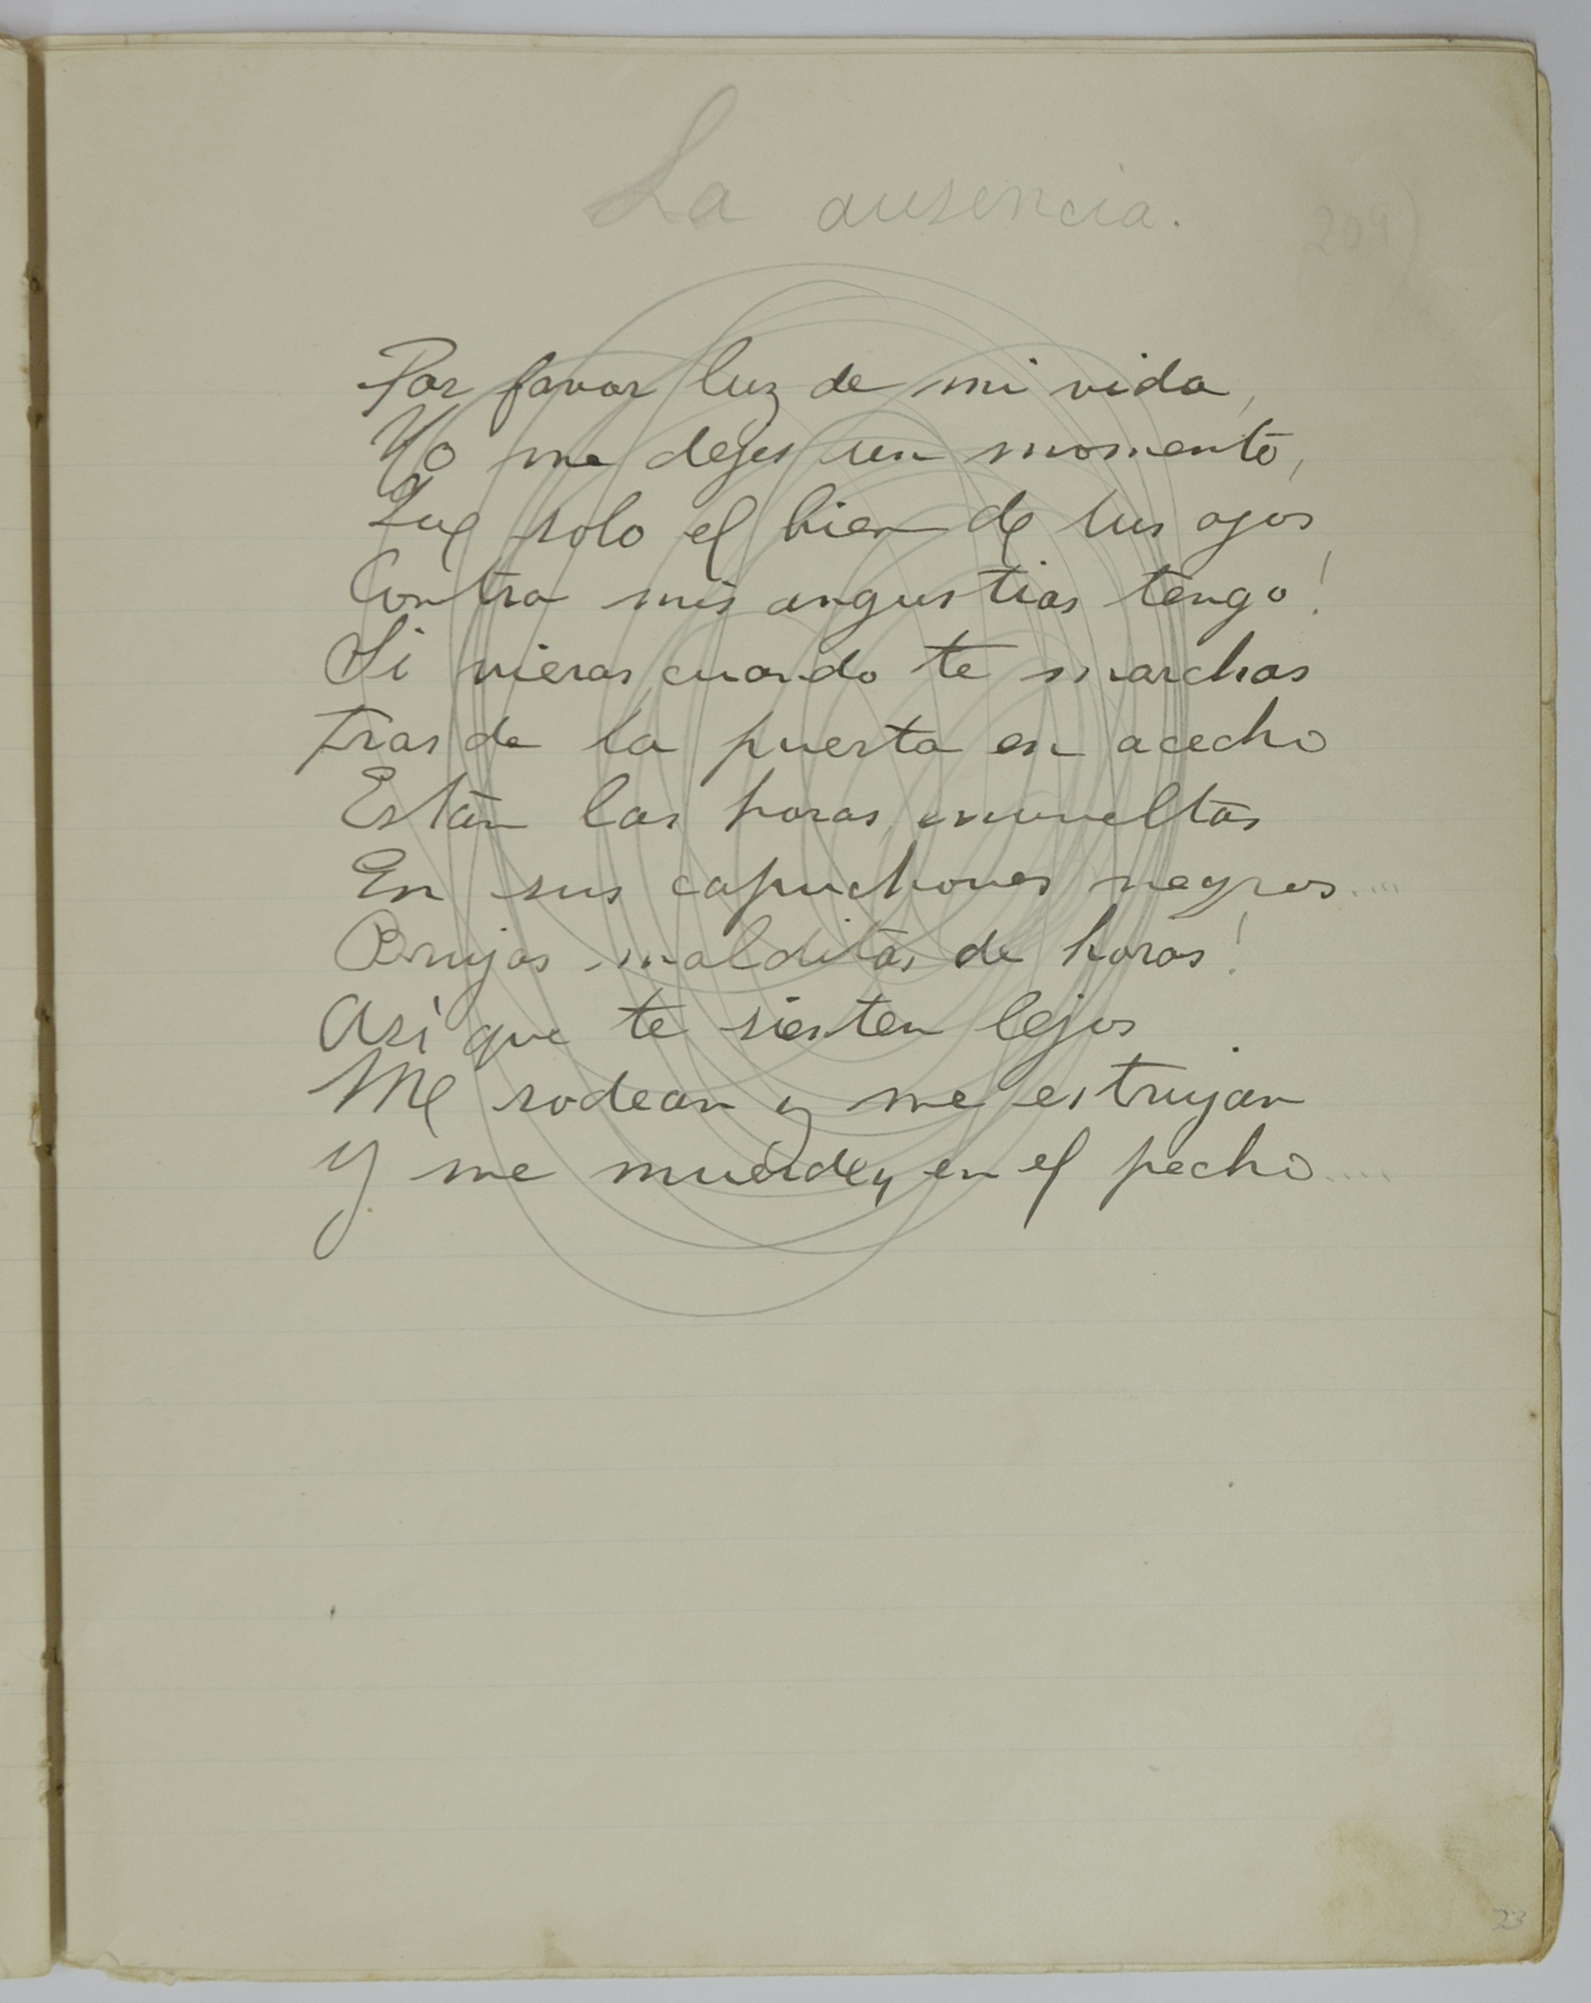 La ausencia.
209)
Por favor luz de mi vida,
No me dejes un momento,
Que solo el bien de tus ojos
Contra mis angustias tengo!
Si vieras, cuando te marchas
Tras de la puerta en acecho
Están las horas, envueltas
En sus capuchones negros....
Brujas malditas de horas!
Así que te sienten lejos
Me rodean y me estrujan
Y me muerden en el pecho....
23